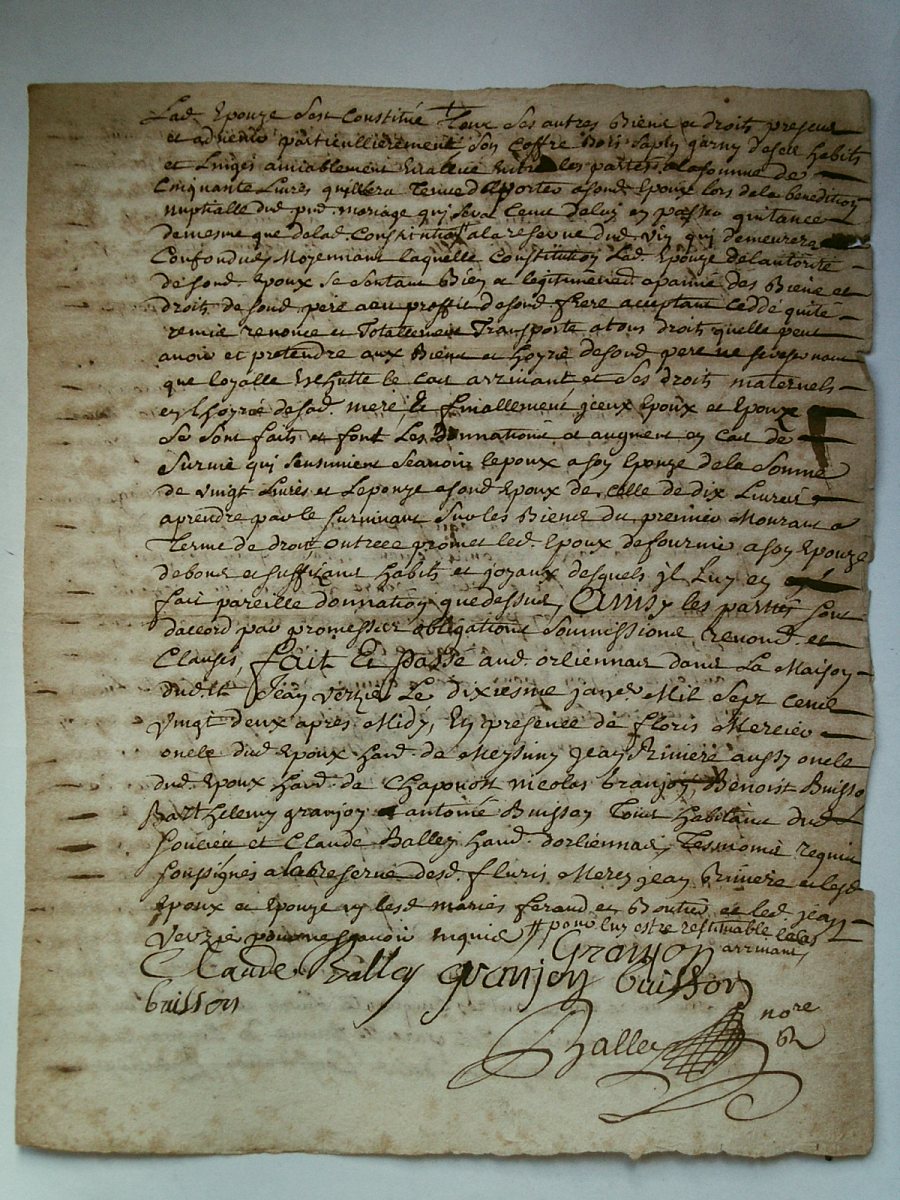 Lad. Epouze sest Constitué Tous ses autres Biens et droits presens
et advenir particullierement son Coffre Bois sapin garny de ses habits
et Linges amiablement Evalué Entre les parties a la somme de
Cinquante Livres quil sera Tenue d'apporter a sond. Epoux lors de la benediction
nuptialle dud. pnt. mariage qui sera Cens de luy en passer quitance
de mesme que de lad. Constitution a la reserve dud. qui demeurera
Confondue Moyennant laquelle Constitution Lad. Epouze de lautorité
de sond. Epoux se Contant Bien et legitimement apanné des Biens et
droits de sond. pere a en proffit de sond. frere acceptant Cedde quite
remis renonce et Totallement Transporte a tous droits quelle peut
avoir et pretendre aux Biens et hoyrie de sond. pere ne se reservant
que loyalle Eschutte le Cas arrivant et ses droits maternels
en lhoyrie de sad. mere Et finallement jceux Epoux et Epouze
se sont faits et font Les Donnations et augment en Cas de
survie qui sensuivent scavoir lepoux a son Epouze de la Somme
de vingt Livres et Lepouze a sond. Epoux de Celle de dix Livres
a prendre par le survivant sur les Biens du premier Mourant a
Terme de droit outre ce promet led. Epoux de fournir a son Epouze
de bons et suffizans habits et joyaux desquels jl Luy en
fait pareille donnation que dessus, Ainsy les parties sont
daccord par promesses obligations soumissions renond. et
Clauses, fait Et passé aud. orliennas dans La Maison
dud. Jean verzie Le dixiesme janver Mil sept Cens
vingt deux apres Midy, En presence de floris Mercier
oncle dud. Epoux hand. de Messimy jean Riviere aussy oncle
dud. Epoux hand. de Chaponost nicolas Granjon, Benoist Buisson
Barthelemy granjon et antoine Buisson Tous habitans dud.
soucieu et Claude Balley hand. dorliennas, Tesmoins requis
soussignés a la reserve desd. floris Mercier jean Riviere et lesd.
Epoux et Epouze ny lesd. mariés feraud et Boutier et led. jean
Verzie pour ne scavoir Enquis // pour luy estre restituable le Cas
arrivant
Granjon
Claude Balley granjon buisson
buisson
Balley nore